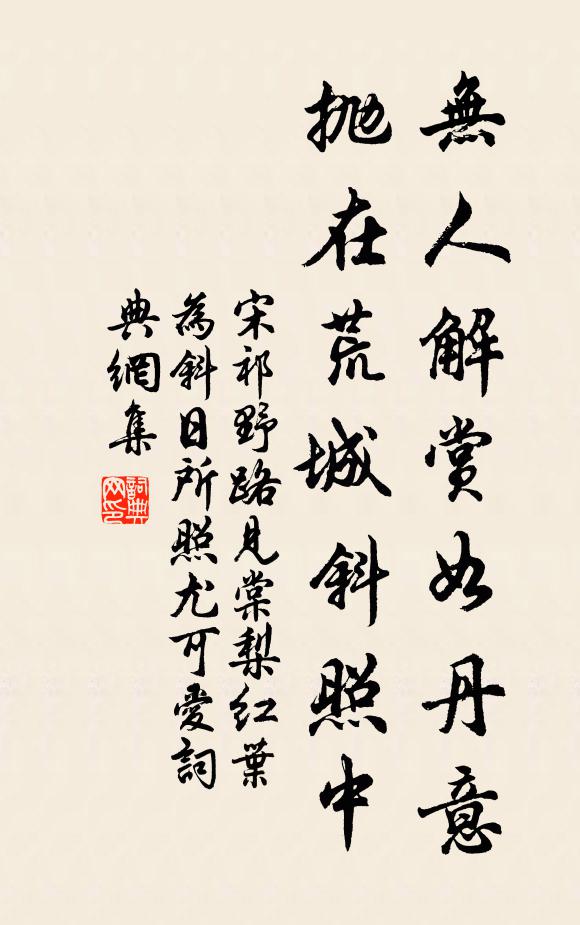 無人解賞如丹意
拋在荒城斜照中
宋祁野路見棠梨紅葉
為斜日所照尤可愛詞
典網集
詞典
网印